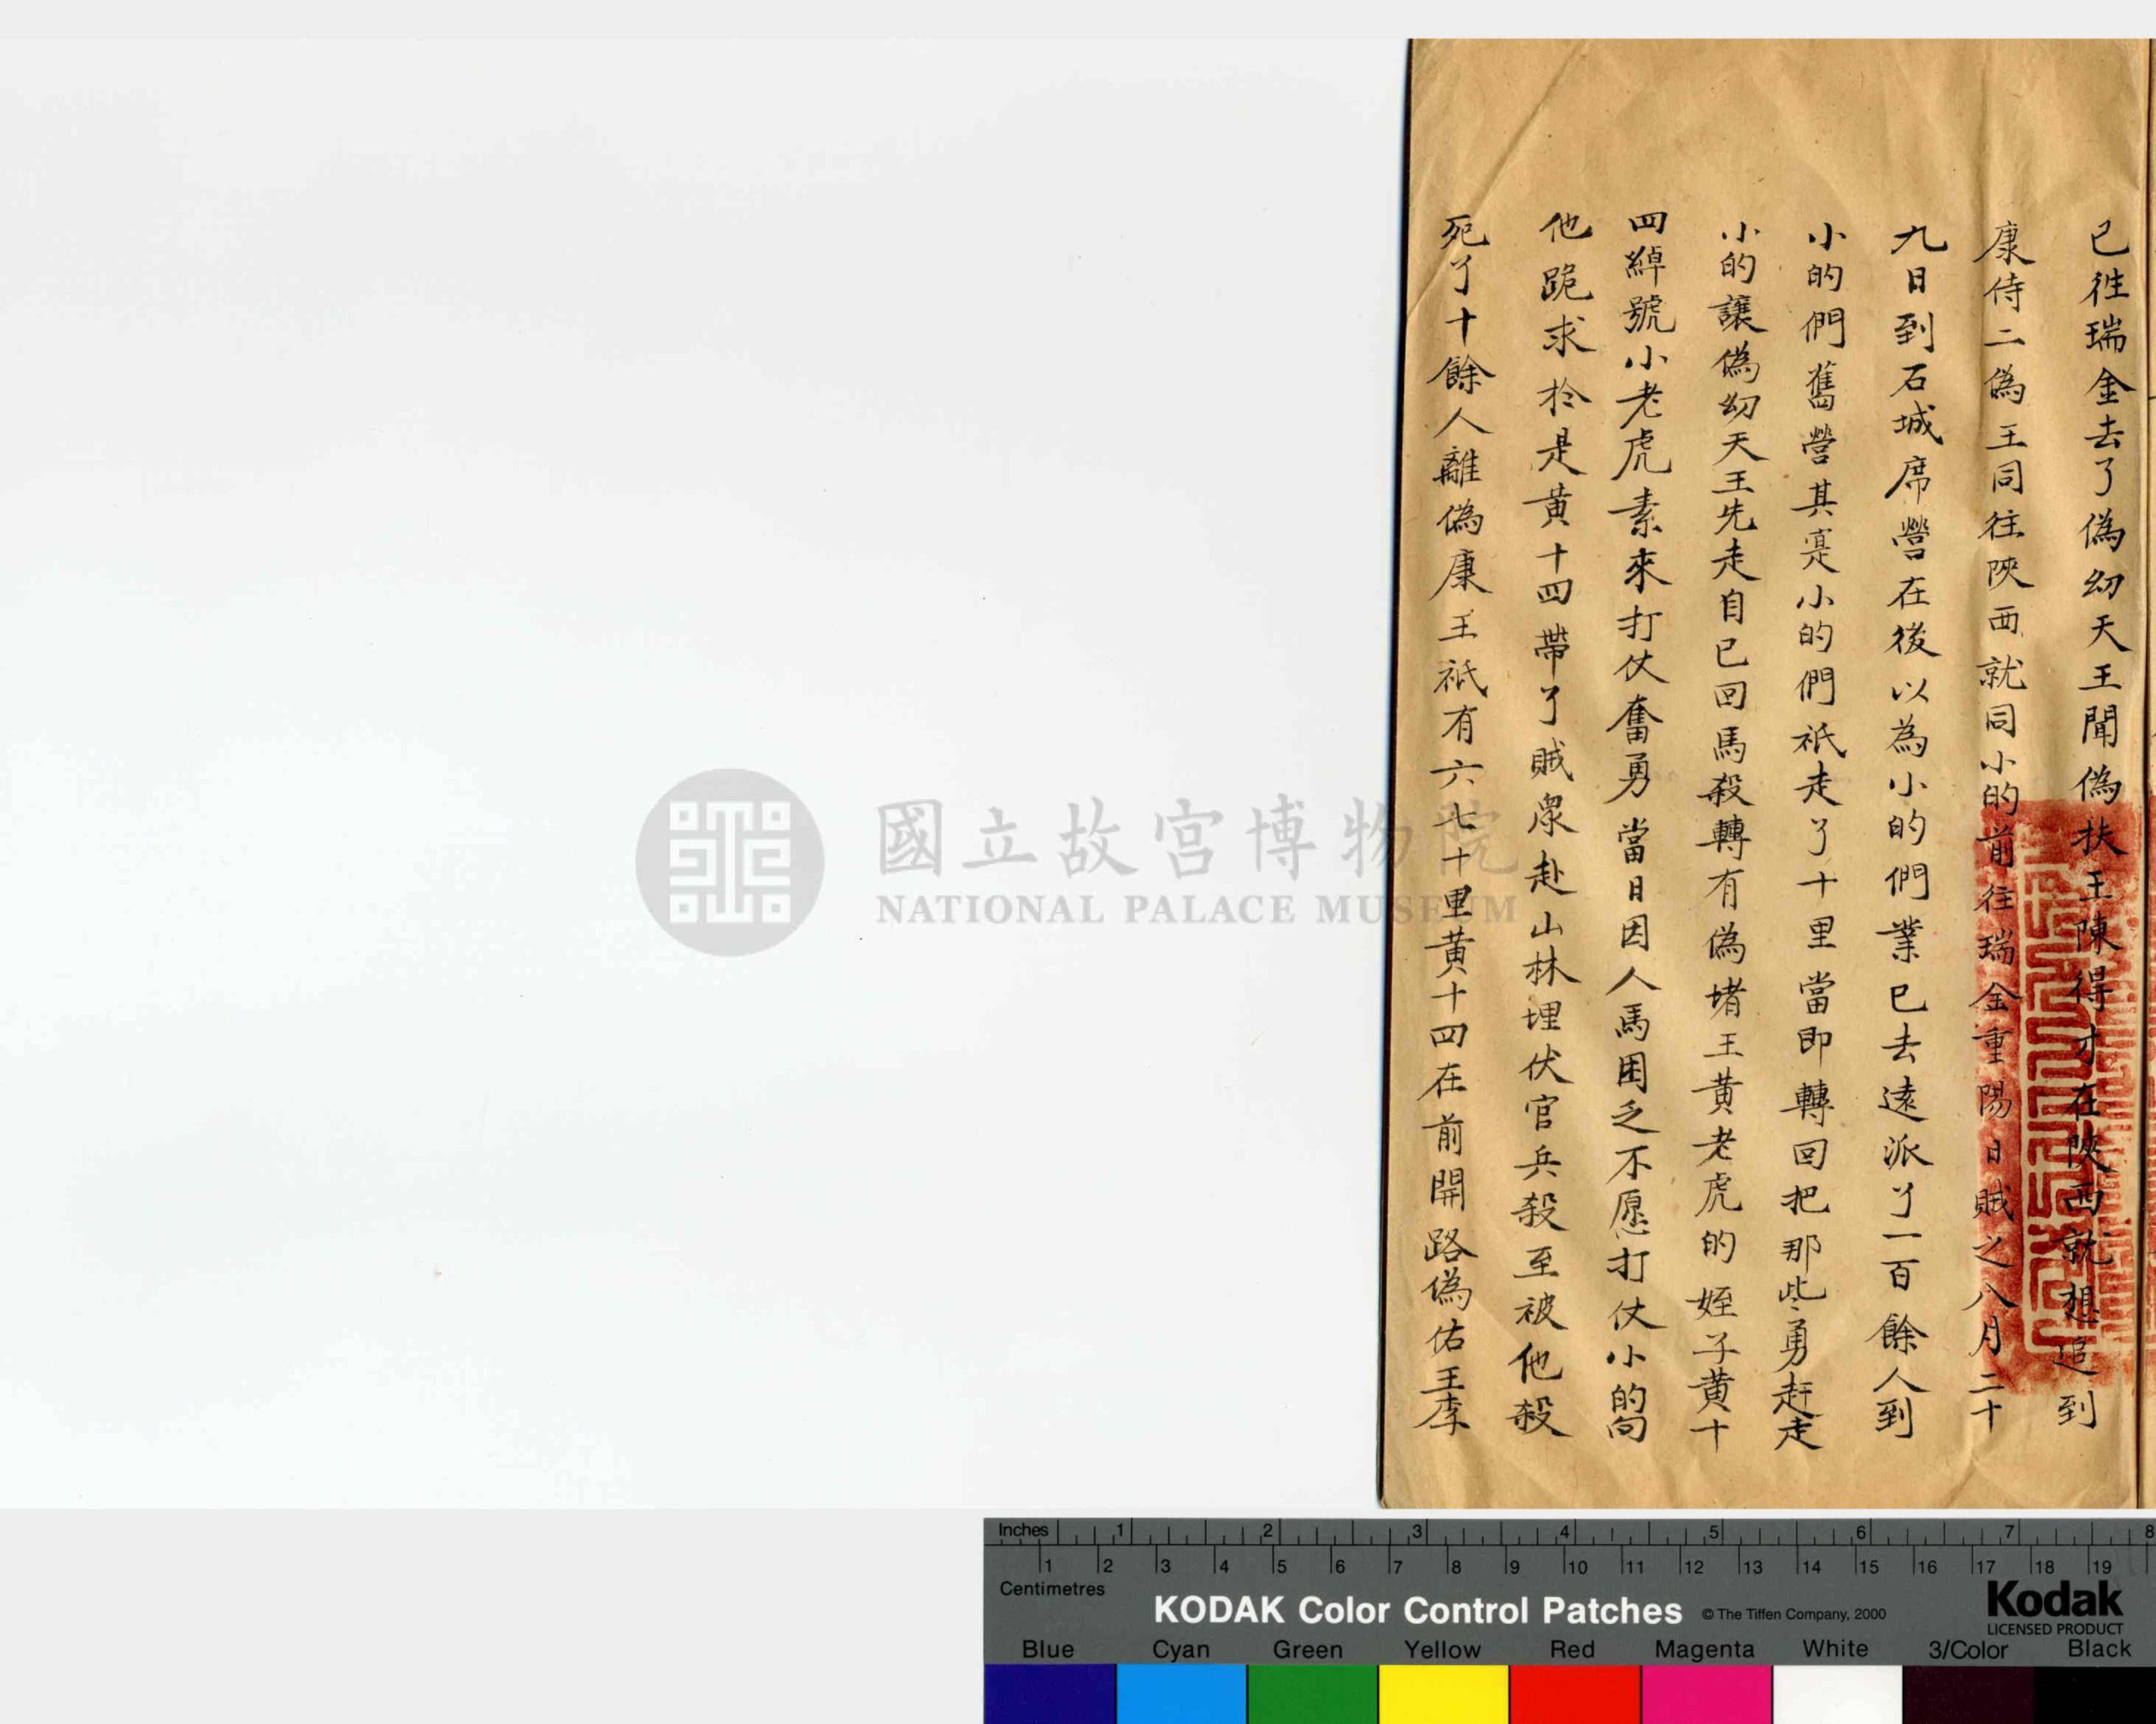 已往瑞金去了偽幼天王聞偽扶王陳得才在陝西就想追到
康侍二偽王同往陝西就同小的前往瑞金重陽日賊之八月二十
九日到石城席營在後以為小的們業已去遠派了一百餘人到
小的們舊營其寔小的們祇走了十里當即轉回把那些勇赶走
小的讓偽幼天王先走自已回馬殺轉有偽堵王黃老虎的姪子黃十
四綽號小老虎素來打仗奮勇當日因人馬困乏不愿打仗小的向
他跪求於是黃十四帶了賊眾赴山林埋伏官兵殺至被他殺
死了十餘人離偽康王祇有六七十里黃十四在前開路偽佑王李
國立故宮博物院
NATIONAL PALACE MUSEUM
Inches 1 2 3 4 5 6 7 8
1 2 3 4 5 6 7 8 9 10 11 12 13 14 15 16 17 18 19
Centimetres
KODAK Color Control Patches © The Tiffen Company, 2000
Kodak
LICENSED PRODUCT
Blue Cyan Green Yellow Red Magenta White 3/Color Black